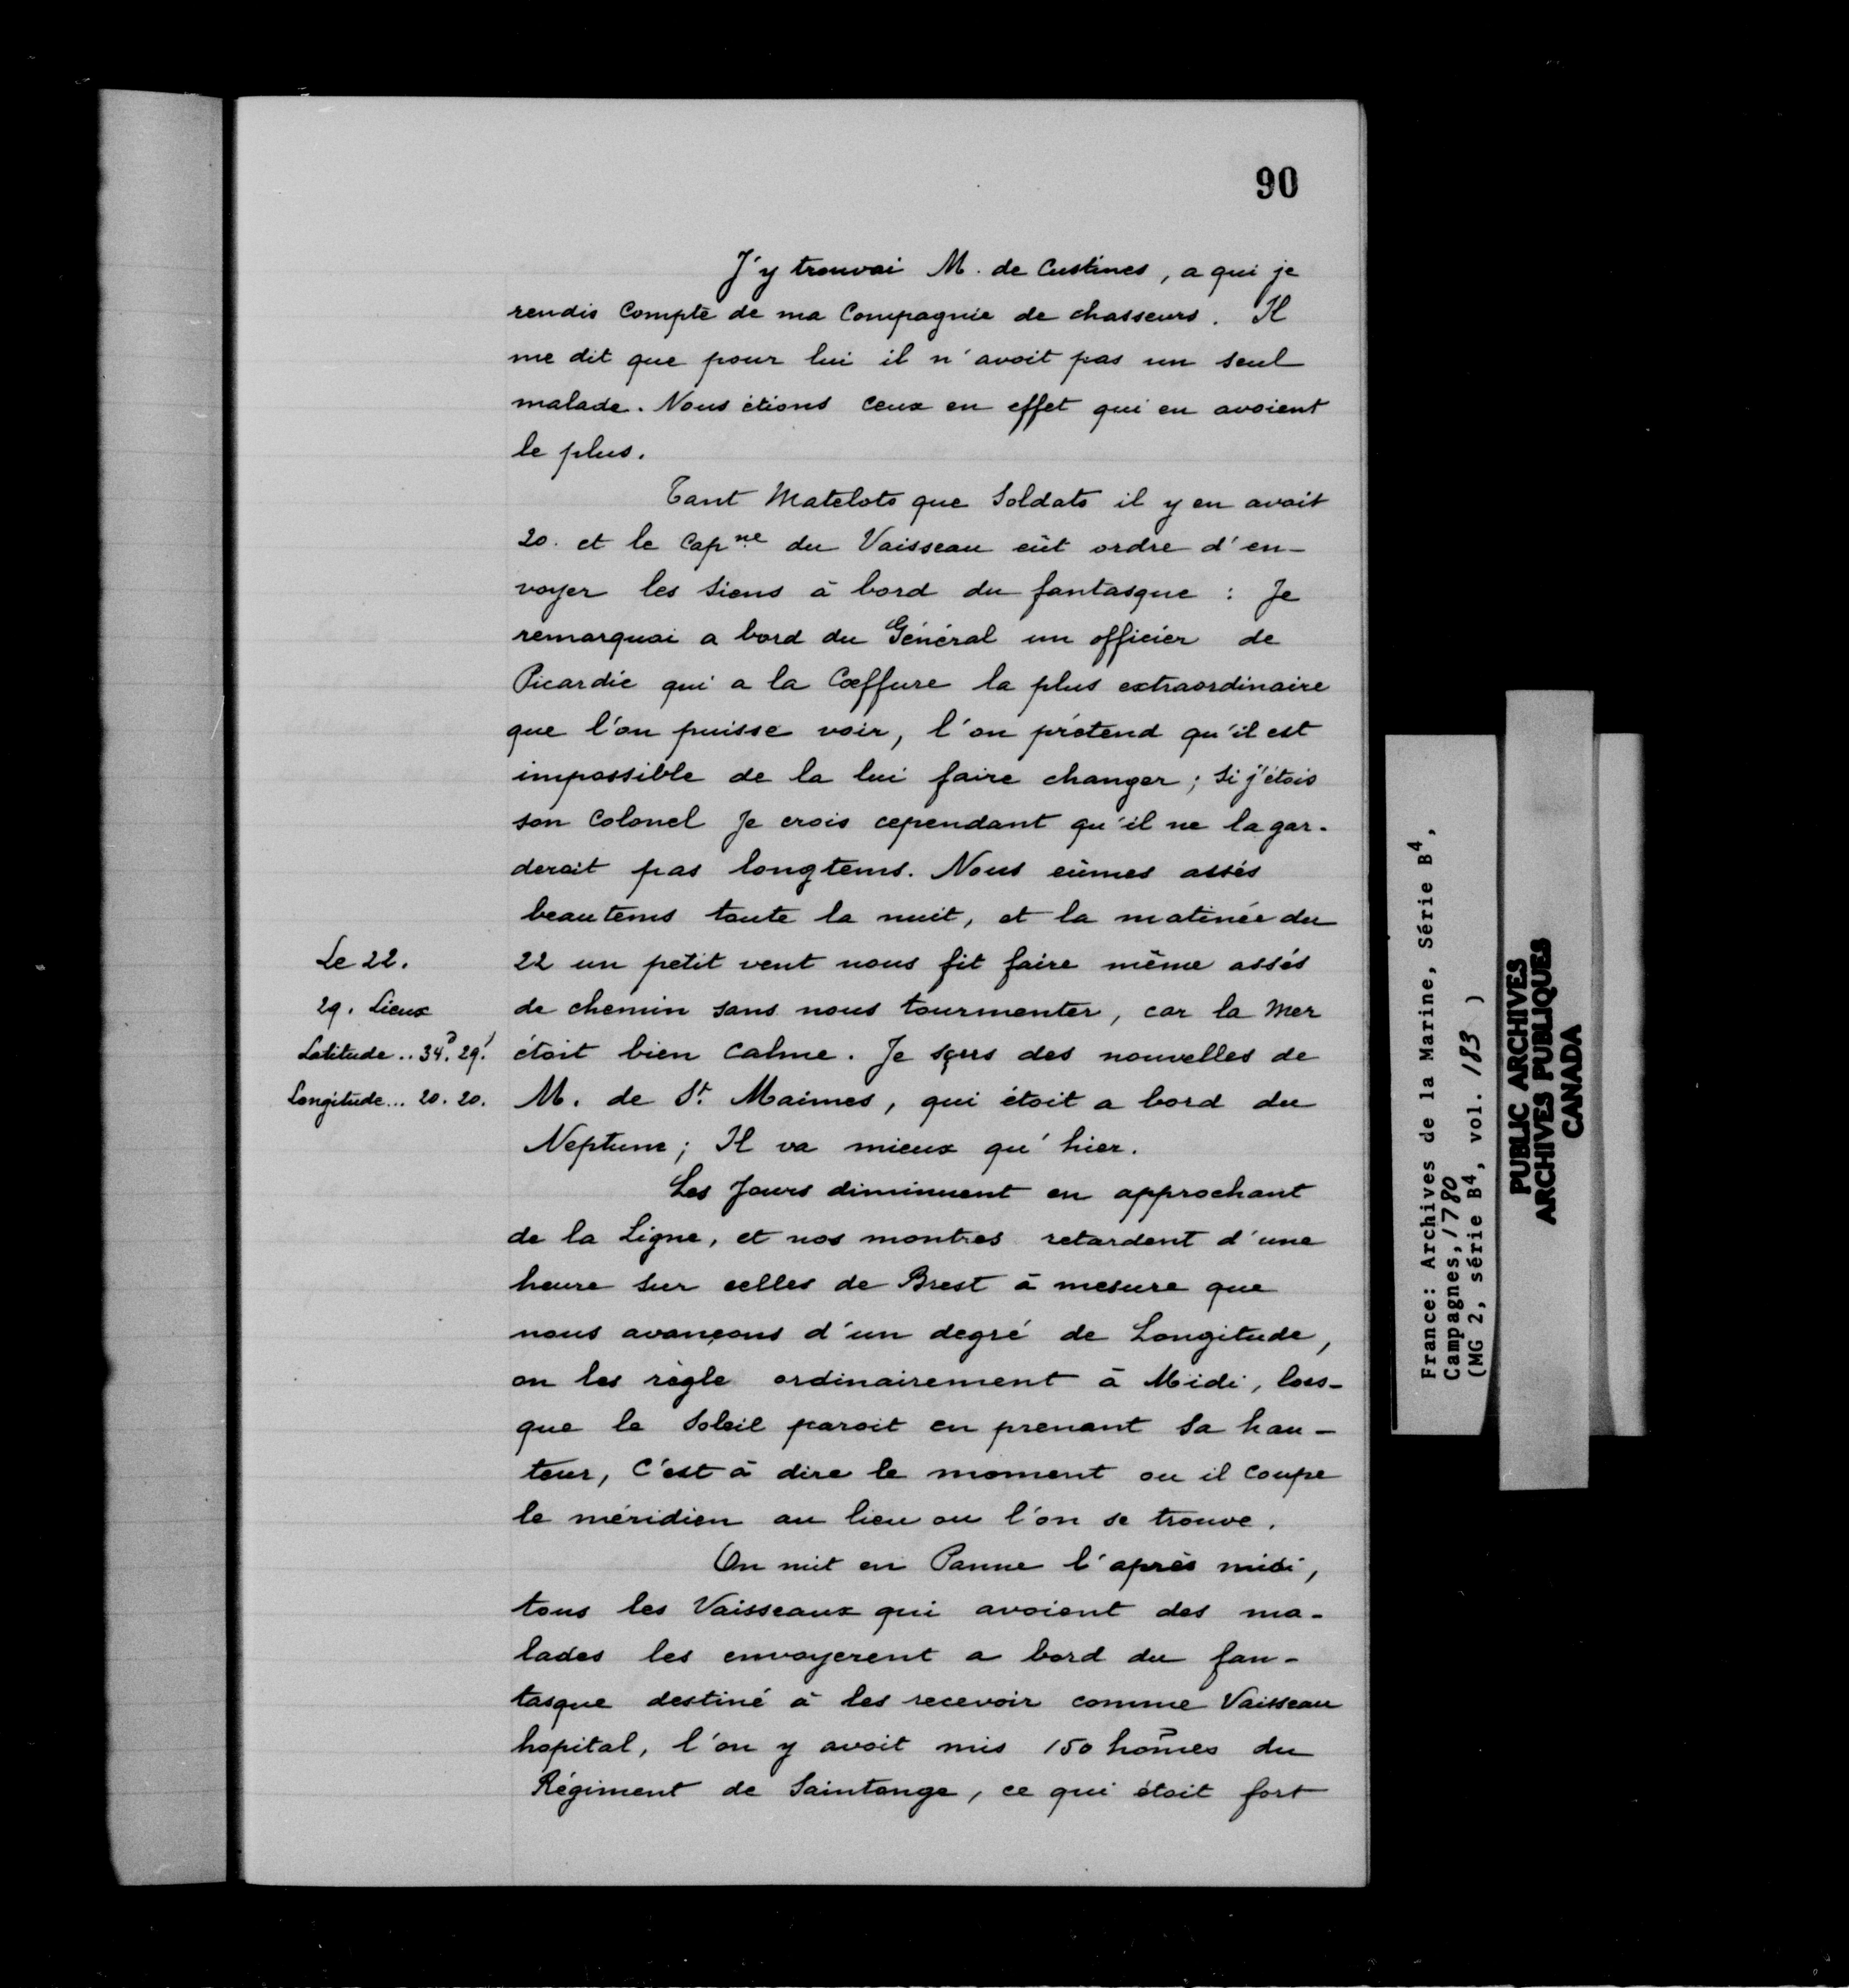 90
J'y trouvai M. de Custines, a qui je
rendis Compte de ma Compagnie de chasseurs. Il
me dit que pour lui il n'avoit pas un seul
malade. Nous étions ceux en effet qui en avoient
le plus.
Tant Matelots que Soldats il y en avait
20. et le Cap.ne du Vaisseau eût ordre d'en-
voyer les siens à bord du fantasque : Je
remarquai a bord du Général un officier de
Picardie qui a la Coeffure la plus extraordinaire
que l'on puisse voir, l'on prétend qu'il est
impossible de la lui faire changer; Si j'étois
son Colonel Je crois cependant qu'il ne la gar-
derait pas longtems. Nous eûmes assés
beau tems toute la nuit, et la matinée du
Le 22.
22 un petit vent nous fit faire même assés
29. Lieux
de chemin sans nous tourmenter, car la Mer
Latitude .. 34.D 29.'
étoit bien Calme. Je sçus des nouvelles de
Longitude... 20. 20.
M. de St. Maimes, qui étoit a bord du
Neptune; Il va mieux qu'hier.
Les Jours diminuent en approchant
de la Ligne, et nos montres retardent d'une
heure sur celles de Brest à mesure que
nous avançons d'un degré de Longitude,
on les règle ordinairement à Midi, lors-
que le Soleil paroit en prenant Sa hau-
teur, C'est à dire le moment ou il Coupe
le méridien au lieu ou l'on se trouve.
On mit en Panne l'après midi,
tous les Vaisseaux qui avoient des ma-
lades les envoyerent a bord du fan-
tasque destiné à les recevoir comme Vaisseau
hopital, l'on y avoit mis 150 hom̃es du
Régiment de Saintonge, ce qui étoit fort
France: Archives de la Marine, Série B4,
Campagnes, 1780
(MG 2, série B4, vol. 183 )
PUBLIC ARCHIVES
ARCHIVES PUBLIQUES
CANADA